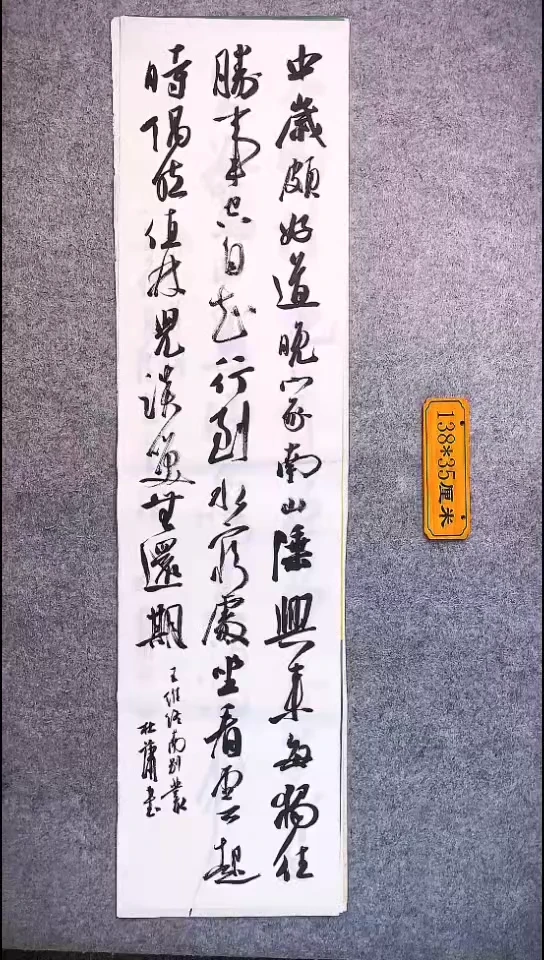 中歲頗好道晚家南山陲興来每獨往
勝事空自知行到水窮處坐看雲起
時偶然值林叟談笑無還期
王維終南別業
杜 書
138*35厘米